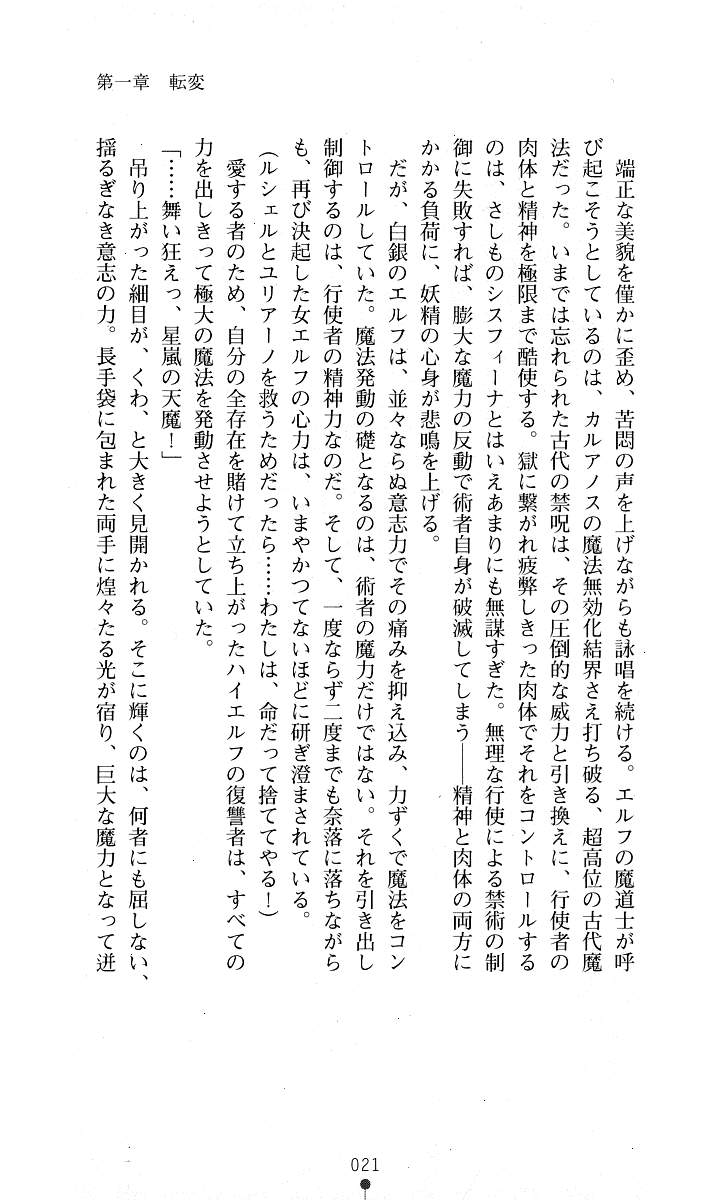 第一章　転変
端正な美貌を僅かに歪め、苦悶の声を上げながらも詠唱を続ける。エルフの魔道士が呼
び起こそうとしているのは、カルアノスの魔法無効化結界さえ打ち破る、超高位の古代魔
法だった。いまでは忘れられた古代の禁呪は、その圧倒的な威力と引き換えに、行使者の
肉体と精神を極限まで酷使する。獄に繋がれ疲弊しきった肉体でそれをコントロールする
のは、さしものシスフィーナとはいえあまりにも無謀すぎた。無理な行使による禁術の制
御に失敗すれば、膨大な魔力の反動で術者自身が破滅してしまう――精神と肉体の両方に
かかる負荷に、妖精の心身が悲鳴を上げる。
だが、白銀のエルフは、並々ならぬ意志力でその痛みを抑え込み、力ずくで魔法をコン
トロールしていた。魔法発動の礎となるのは、術者の魔力だけではない。それを引き出し
制御するのは、行使者の精神力なのだ。そして、一度ならず二度までも奈落に落ちながら
も、再び決起した女エルフの心力は、いまやかつてないほどに研ぎ澄まされている。
（ルシェルとユリアーノを救うためだったら……わたしは、命だって捨ててやる！）
愛する者のため、自分の全存在を賭けて立ち上がったハイエルフの復讐者は、すべての
力を出しきって極大の魔法を発動させようとしていた。
「……舞い狂えっ、星嵐の天魔！」
吊り上がった細目が、くわ、と大きく見開かれる。そこに輝くのは、何者にも屈しない、
揺るぎなき意志の力。長手袋に包まれた両手に煌々たる光が宿り、巨大な魔力となって迸
021